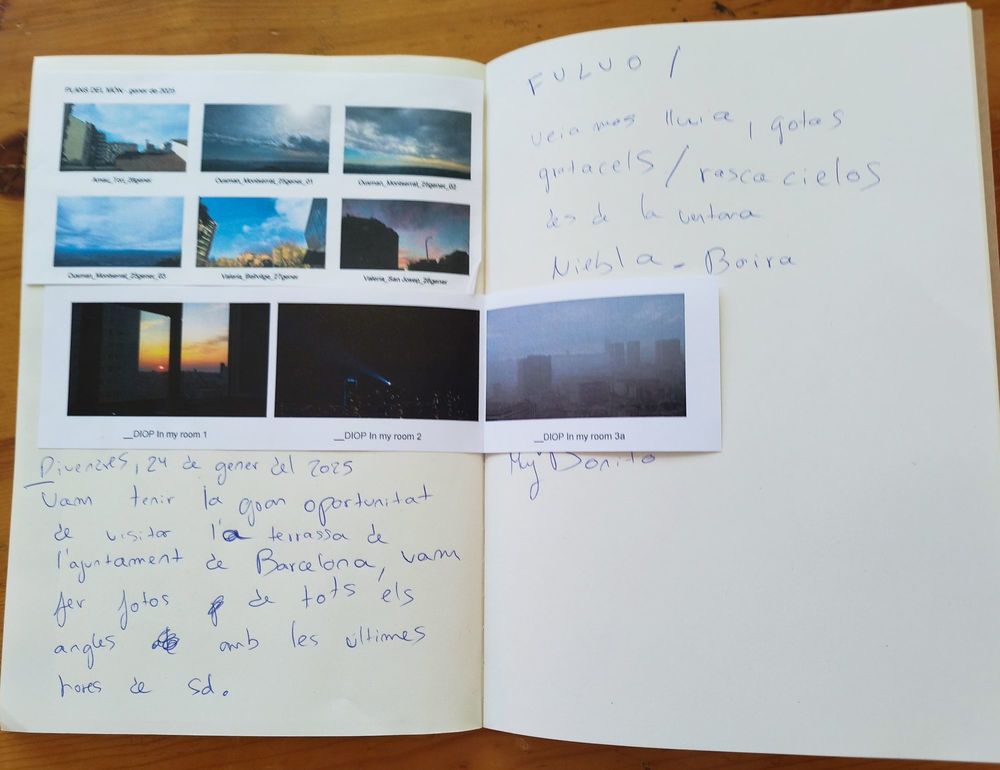 PLANS DEL MÓN - gener de 2025
Arnau_Ton_28gener
Ousman_Montserrat_25gener_01
Ousman_Montserrat_25gener_02
Ousman_Montserrat_25gener_03
Valeria_Bellvitge_27gener
Valeria_San Josep_28gener
__DIOP In my room 1
__DIOP In my room 2
__DIOP In my room 3a
Divendres, 24 de gener del 2025
Vam tenir la gran oportunitat
de visitar la terrassa de
l'ajuntament de Barcelona, vam
fer fotos de tots els
angles amb les últimes
hores de sol.
FULUO /
veiamos lluvia, gotas
gratacels / rascacielos
des de la ventana
Niebla - Boira
My Bonito